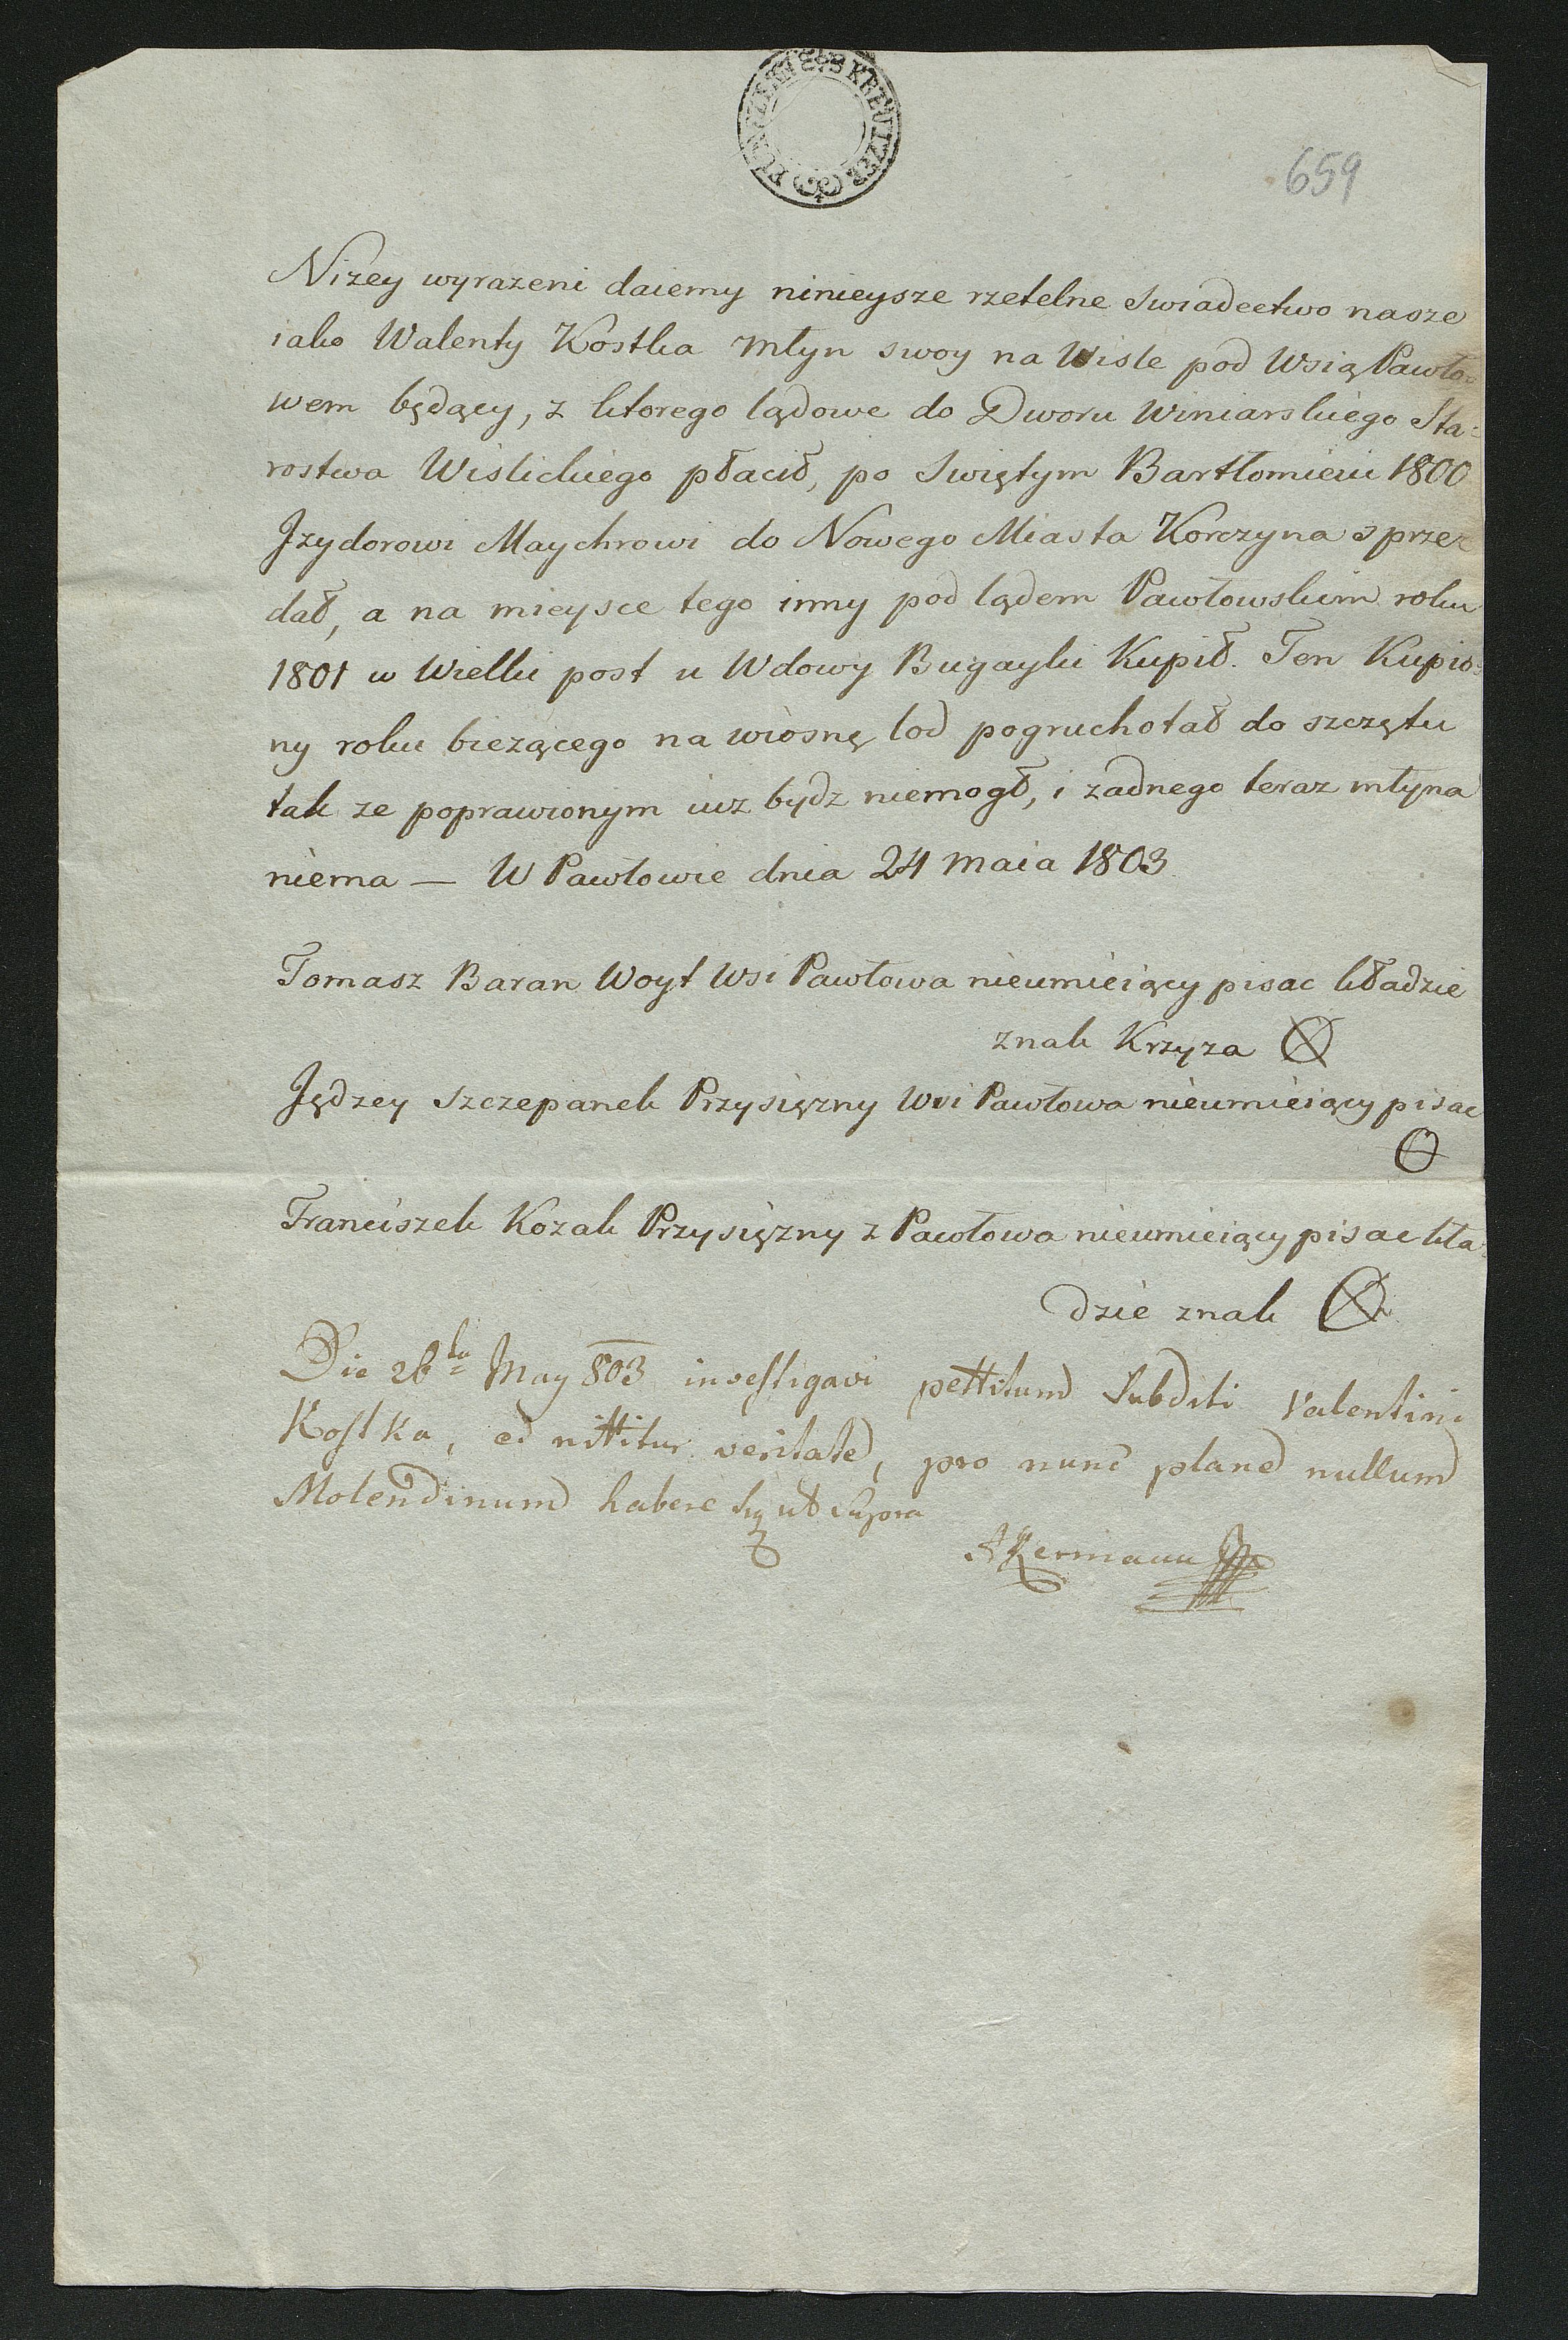 FUNFZEHN KREUTZER
659
Nizey wyrazeni daiemy ninieysze rzetelne swiadectwo nasze
iako Walenty Kostka Młyn swoy na Wisle pod Wsią Pawło=
wem będący, z ktorego lądowe do Dworu Winiarskiego Sta=
rostwa Wislickiego płacił, po Swiętym Bartłomieiu 1800
Jzydorowi Maychrowi do Nowego Miasta Korczyna sprze=
dał, a na mieysce tego inny pod lądem Pawłowskim roku
1801 w Wielki post u Wdowy Bugayki Kupił. Ten Kupio=
ny roku biezącego na wiosnę lod pogruchotał do szczętu
tak ze poprawionym iuz bydz niemogł, i zadnego teraz młyna
niema — W Pawłowie dnia 24 Maia 1803
Tomasz Baran Woyt Wsi Pawłowa nieumieiący pisac kładzie
znak Krzyza
Jędzey Szczepanek Przysięzny Wsi Pawłowa nieumieiący pisac
Franciszek Kozak Przysięzny z Pawłowa nieumieiący pisac kła=
dzie znak
Die 26ta May 803 investigavi pettitum Subditi Valentini
Kostka, et nittitur veritate, pro nunc plane nullum
Molendinum habere Sig ut Supra